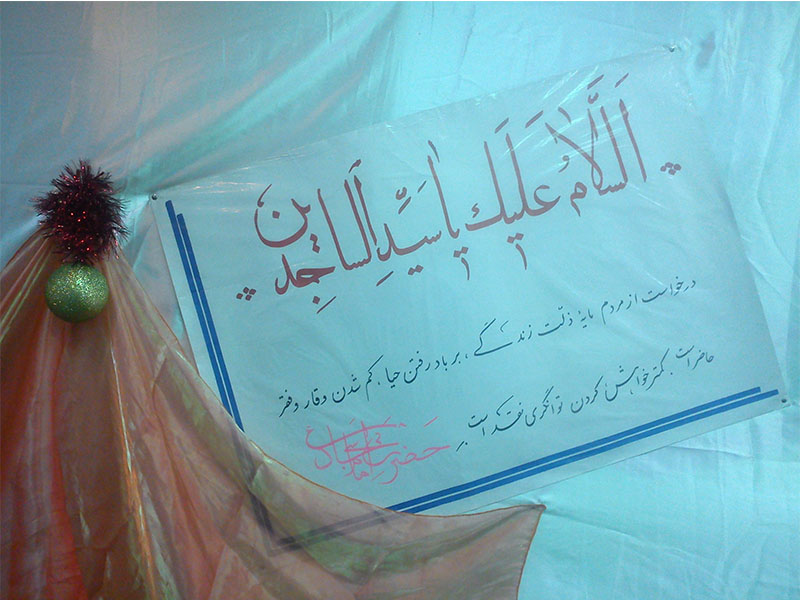 اَلسَّلامُ عَلَیكَ یا سَیِّدِ اَلساجِدین
درخواست از مردم مایهٔ ذلّت زندگی ، بر باد رفتن حیا ، کم شدن وقار و فقر
حاضر است. کمتر خواهش کردن توانگری نقد است.
حضرت امام سجاد ع